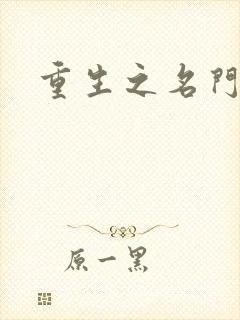 重生之名門
原一黑